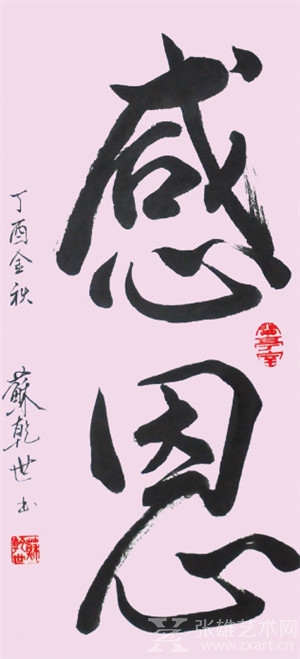 感恩
丁酉金秋
蘇乾世书
蘇乾世
张雄艺术网
www.zxart.cn